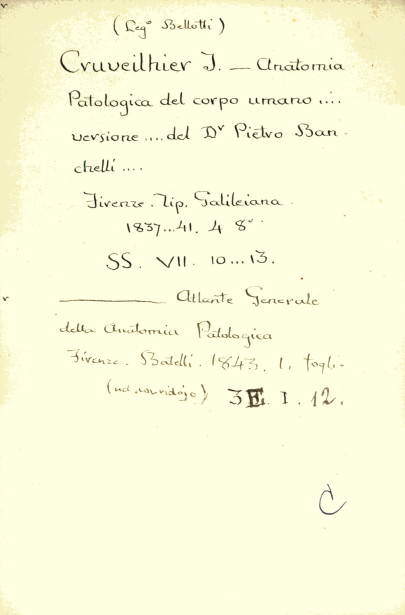 (Leg° Bellotti)
Cruveilhier J. — Anatomia
Patologica del corpo umano ....
versione .... del Dr Pietro Ban-
chelli ....
Firenze. Tip. Galileiana.
1837...41. 4 8°
SS. VII. 10...13.
———— Atlante Generale
della Anatomia Patologica
Firenze. Batelli. 1843. 1, fogl.
(nel corridojo) 3E. I. 12.
C